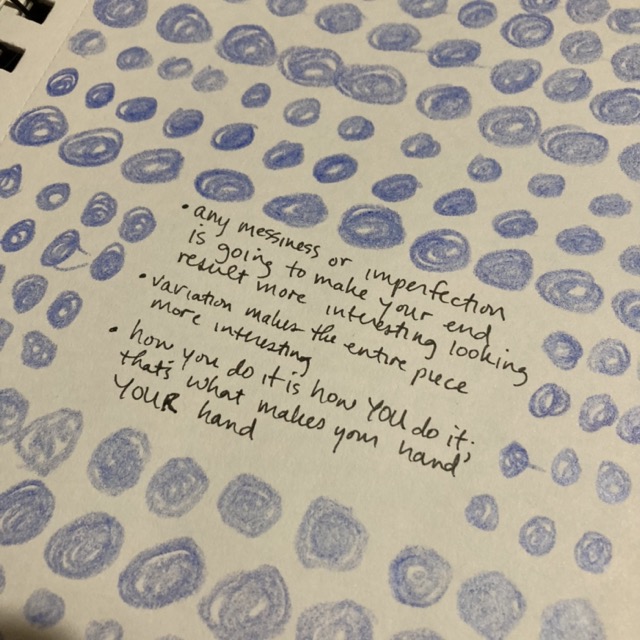 • any messiness or imperfection
is going to make your end
result more interesting looking
• variation makes the entire piece
more interesting
• how you do it is how YOU do it.
that's what makes your hand
YOUR hand